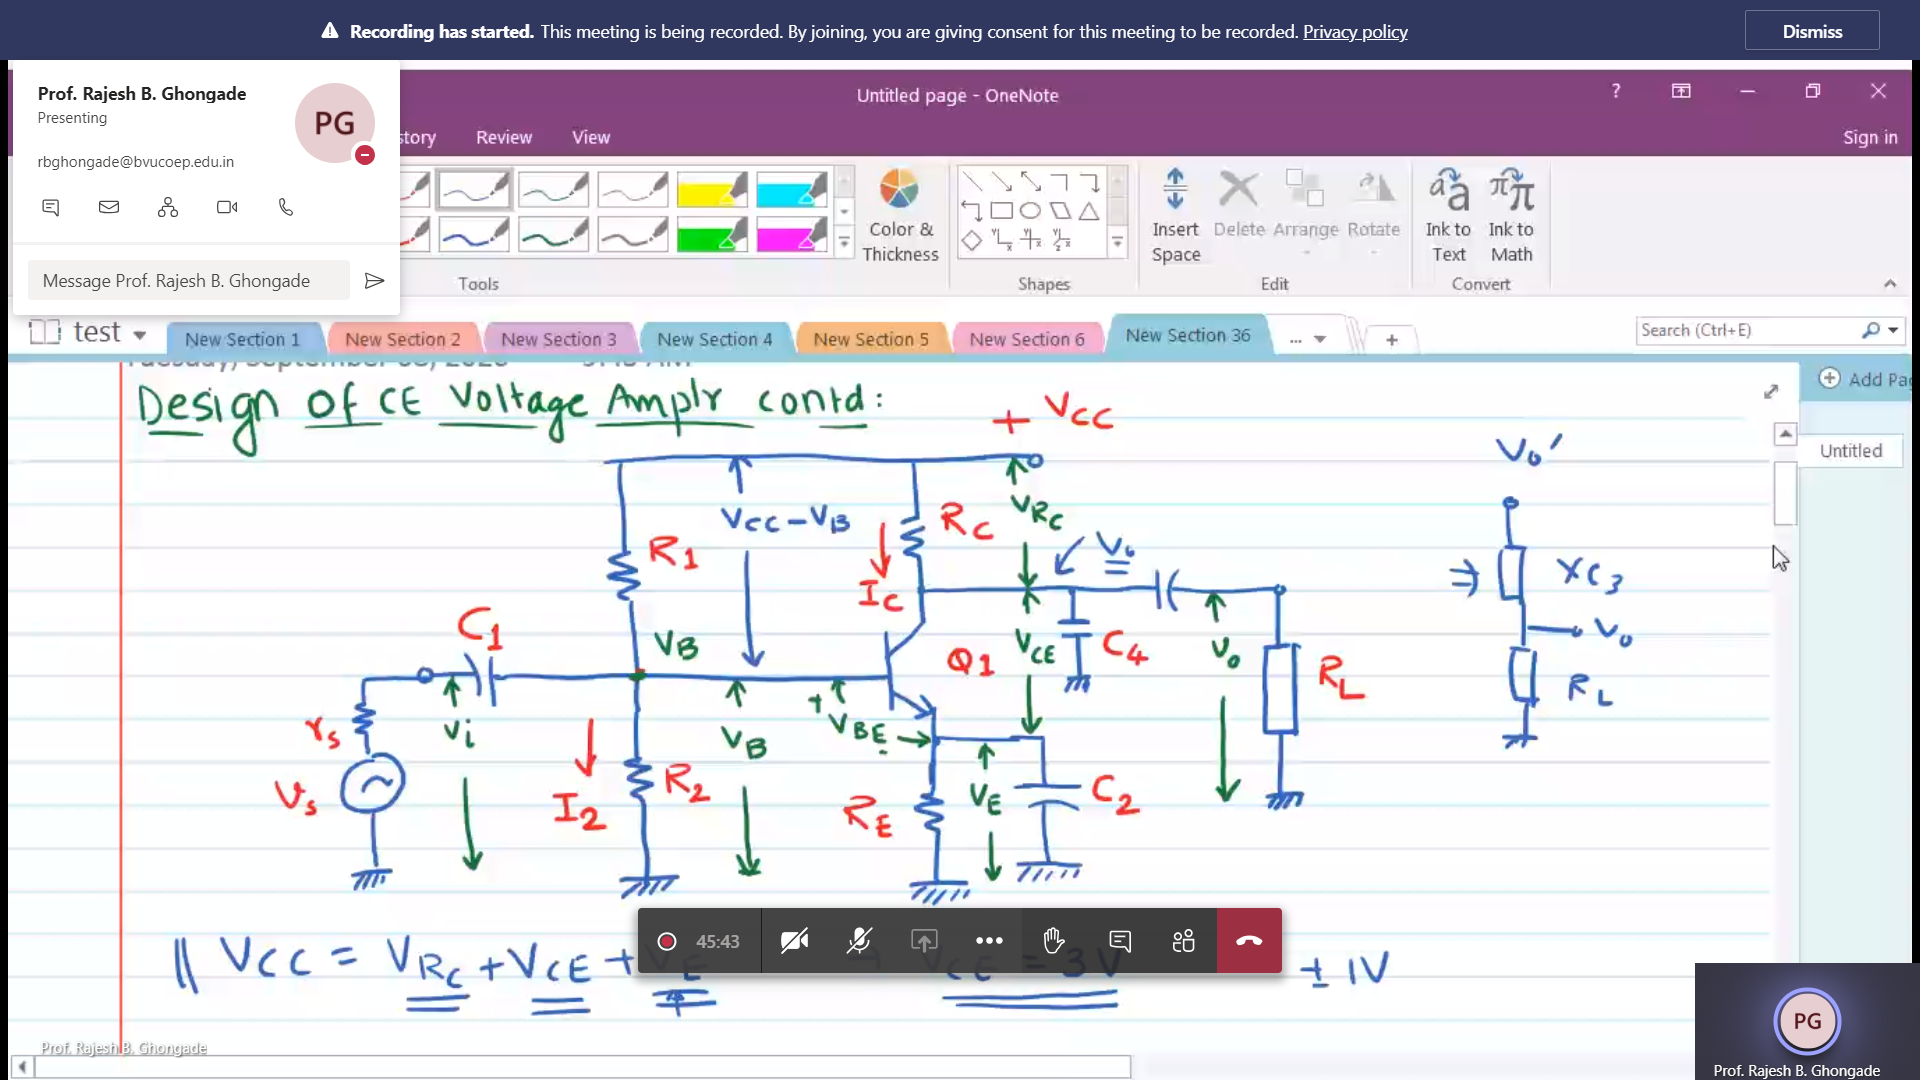 Recording has started. This meeting is being recorded. By joining, you are giving consent for this meeting to be recorded. Privacy policy
Dismiss
Prof. Rajesh B. Ghongade
Presenting
PG
rbghongade@bvucoep.edu.in
Message Prof. Rajesh B. Ghongade
Untitled page - OneNote
? 
story Review View
Sign in
Color & Thickness
Insert Space
Delete
Arrange
Rotate
Ink to Text
Ink to Math
Tools
Shapes
Edit
Convert
test
New Section 1
New Section 2
New Section 3
New Section 4
New Section 5
New Section 6
New Section 36
...
Search (Ctrl+E)
Add Pa
Untitled
Design of CE Voltage Amplr contd:
+ VCC
Vo'
VCC-VB
RC
VRC
R1
IC
Vo
XC3
C1
VB
Q1
VCE
C4
Vo
RL
Vo
RL
rs
Vi
VB
+ VBE
Vs
I2
R2
RE
VE
C2
|| VCC = VRC + VCE + VE
VCE = 3V ± 1V
45:43
Prof. Rajesh B. Ghongade
PG
Prof. Rajesh B. Ghongade